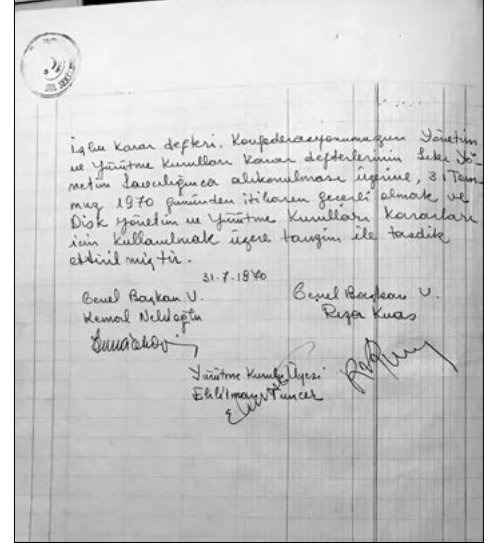 İşbu karar defteri, Konfederasyonumuzun Yönetim
ve Yürütme Kurulları Karar defterlerinin Sıkı Yö-
netim Savcılığınca alıkonulması üzerine, 31 Tem-
muz 1970 gününden itibaren geçerli olmak ve
Disk Yönetim ve Yürütme Kurulları Kararları
için kullanılmak üzere tanzim ile tasdik
ettirilmiştir.
31.7.1970
Genel Başkan V.
Kemal Nebioğlu
Genel Başkan V.
Rıza Kuas
Yürütme Kurulu Üyesi
Ehliiman Tuncer